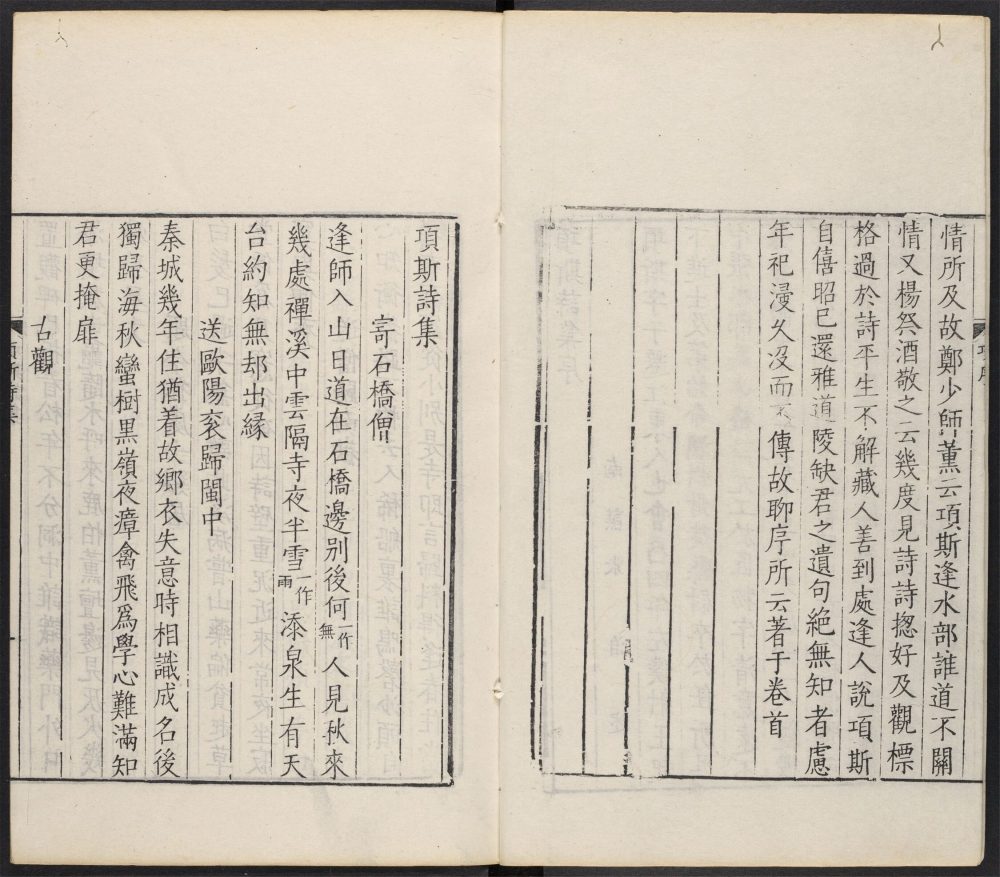 情所及故鄭少師薰云項斯逢水部誰道不關
情又楊祭酒敬之云幾度見詩詩揔好及觀標
格過於詩平生不解藏人善到處逢人說項斯
自僖昭已還雅道陵缺君之遺句絶無知者慮
年祀浸久沒而不傳故聊序所云著于卷首
項斯詩集
寄石橋僧
逢師入山日道在石橋邊別後何一作無人見秋來
幾處禪溪中雲隔寺夜半雪一作雨添泉生有天
台約知無却出縁
送歐陽衮歸閩中
秦城幾年住猶着故鄉衣失意時相識成名後
獨歸海秋蠻樹黒嶺夜瘴禽飛爲學心難滿知
君更掩扉
古觀